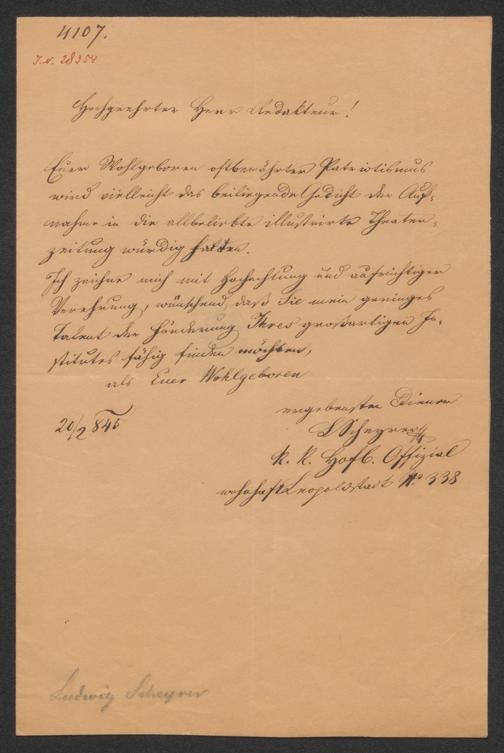 4107.
I.N. 28354
Hochgeehrter Herr Redakteur!
Euer Wohlgeboren oftbewährter Patriotismus
wird vielleicht das beiliegende Gedicht der Auf-
nahme in die allbeliebte illustrirte Theater-
zeitung würdig halten.
Ich zeichne mich mit Hochachtung und aufrichtiger
Verehrung, wünschend, daß Sie mein geringes
Talent der Förderung Ihres großartigen In-
stitutes fähig finden möchten,
als Euer Wohlgeboren
ergebenster Diener
20/2 845
LScheyrer
k. k. Hofb. Offizial
wohnhaft Leopoldstadt No 338
Ludwig Scheyrer